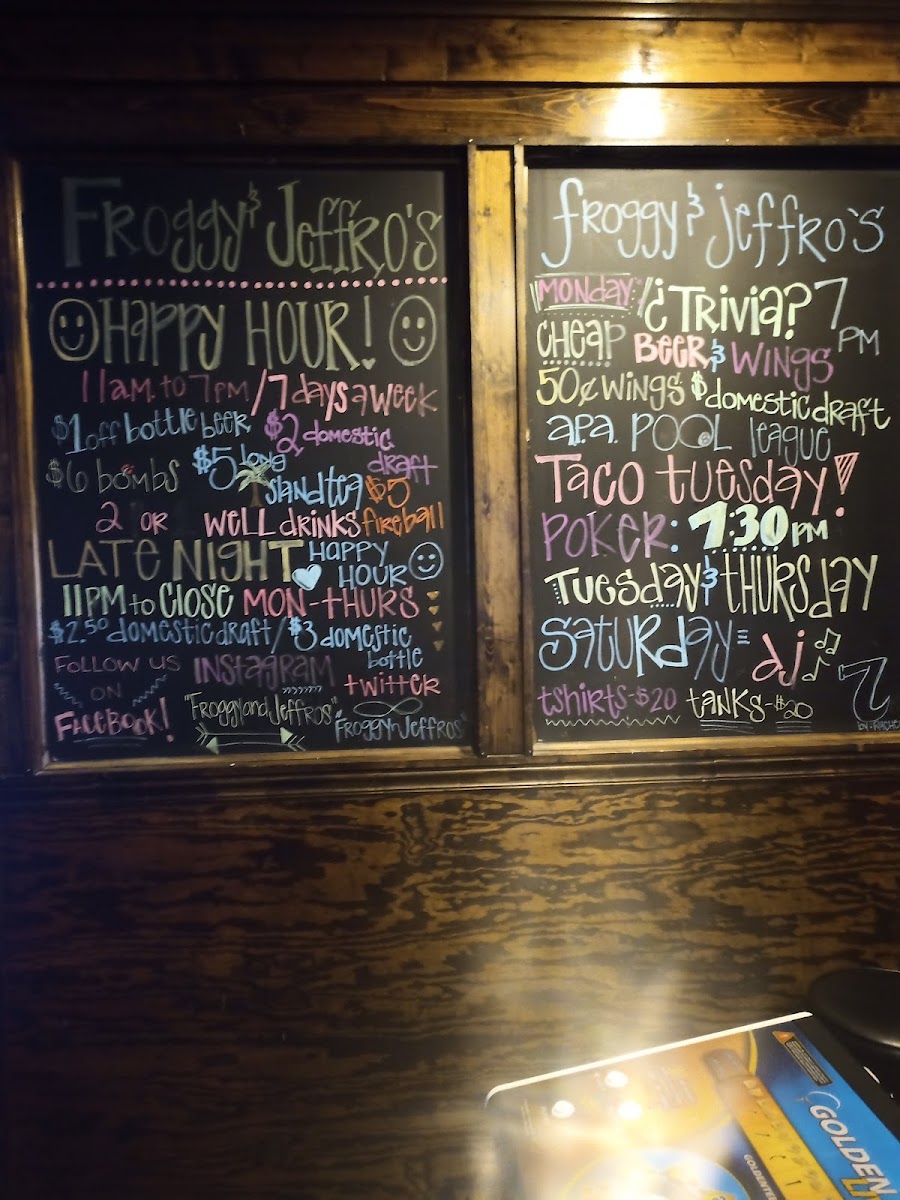 Froggy & Jeffro's
Happy Hour!
11am to 7pm / 7 days a week
$1 off bottle beer $2 domestic draft
$6 bombs $5 long island tea $5 fireball
2 or well drinks
Late Night Happy Hour
11pm to close Mon-Thurs
$2.50 domestic draft / $3 domestic bottle
Follow us on Facebook!
Instagram "FroggyandJeffros"
twitter FroggynJeffros
froggy & jeffro's
Monday / ¿Trivia? 7 pm
Cheap Beer & Wings
50¢ wings $ domestic draft
a.p.a. Pool league
Taco tuesday!
Poker: 7:30 pm
Tuesday & thursday
Saturday = dj
tshirts-$20 tanks-$20
GOLDEN